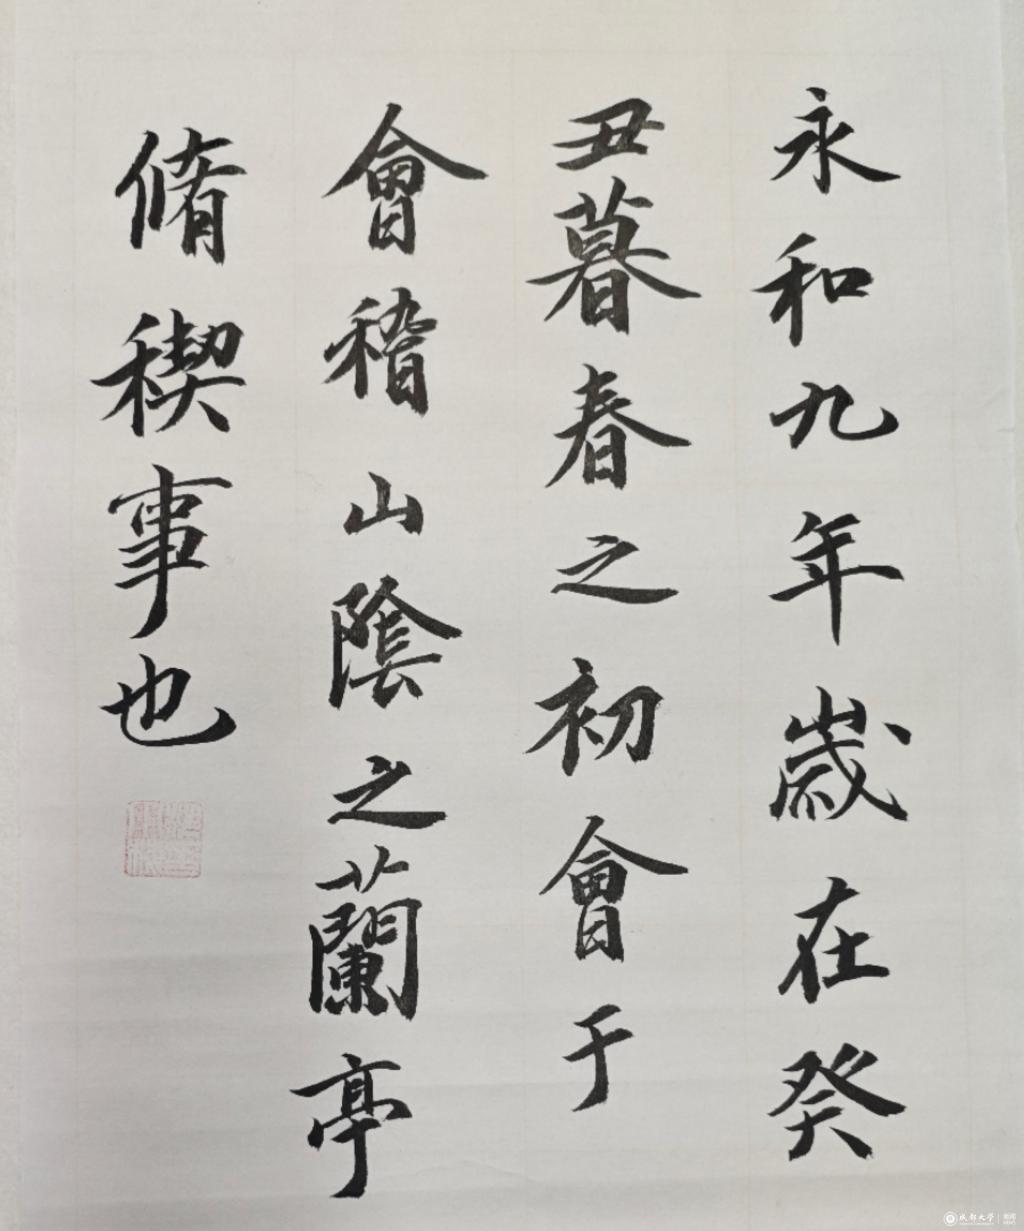 永和九年歲在癸
丑暮春之初會于
會稽山陰之蘭亭
脩稧事也
成都大学